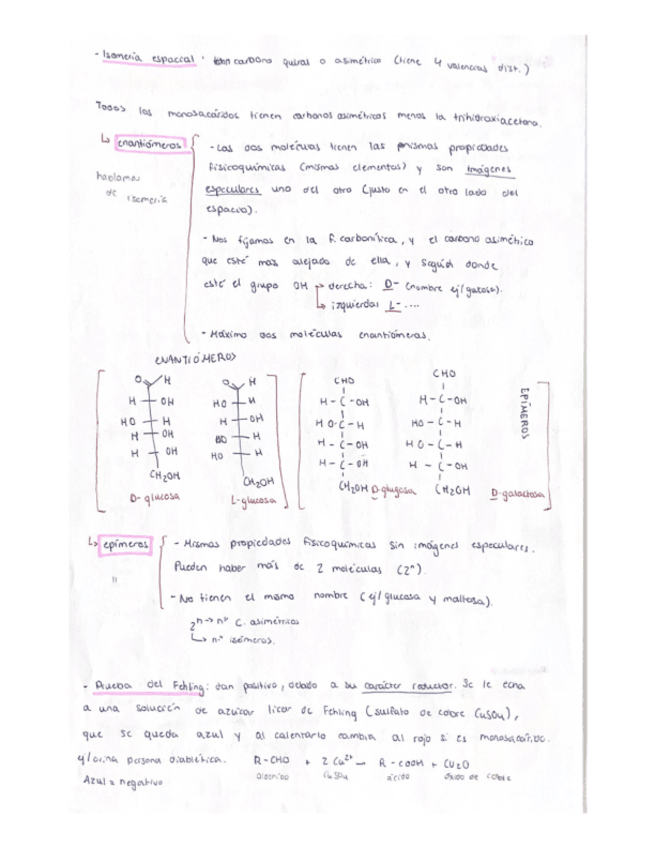 - Isomería espacial: carbono quiral o asimétrico (tiene 4 valencias dist.)
Todos los monosacáridos tienen carbonos asimétricos menos la trihidroxiacetona.
↳ enantiómeros
hablamos de isomería
- Las dos moléculas tienen las mismas propiedades
fisicoquímicas (mismos elementos) y son imágenes
especulares uno del otro (justo en el otro lado del
espacio).
- Nos fijamos en la f. carbonílica, y el carbono asimétrico
que esté más alejado de ella, y según donde
esté el grupo OH → derecha: D- (nombre ej/
↳ izquierda: L- ....
- Máximo dos moléculas enantiómeras.
ENANTIÓMEROS
O H
H OH
HO H
H OH
H OH
CH2OH
D- glucosa
O H
HO H
H OH
HO H
HO H
CH2OH
L-glucosa
CHO
H - C - OH
HO - C - H
H - C - OH
H - C - OH
CH2OH
CHO
H - C - OH
HO - C - H
HO - C - H
H - C - OH
CH2OH
D-galactosa
EPÍMEROS
↳ epímeros
"
- Mismas propiedades fisicoquímicas sin imágenes especulares.
Pueden haber más de 2 moléculas (2ⁿ).
- No tienen el mismo nombre (ej/ glucosa y maltosa).
2ⁿ → nº C. asimétricos
↳ nº isómeros.
- Prueba del Fehling: dan positivo, debido a su carácter reductor. Se le echa
a una solución de azúcar licor de Fehling (sulfato de cobre CuSO4),
que se queda azul y al calentarlo cambia al rojo si es monosacárido.
ej/orina persona diabética. R-CHO + 2 Cu²⁺ → R - COOH + Cu2O
Azul = negativo aldehído CuSO4 ácido óxido de cobre